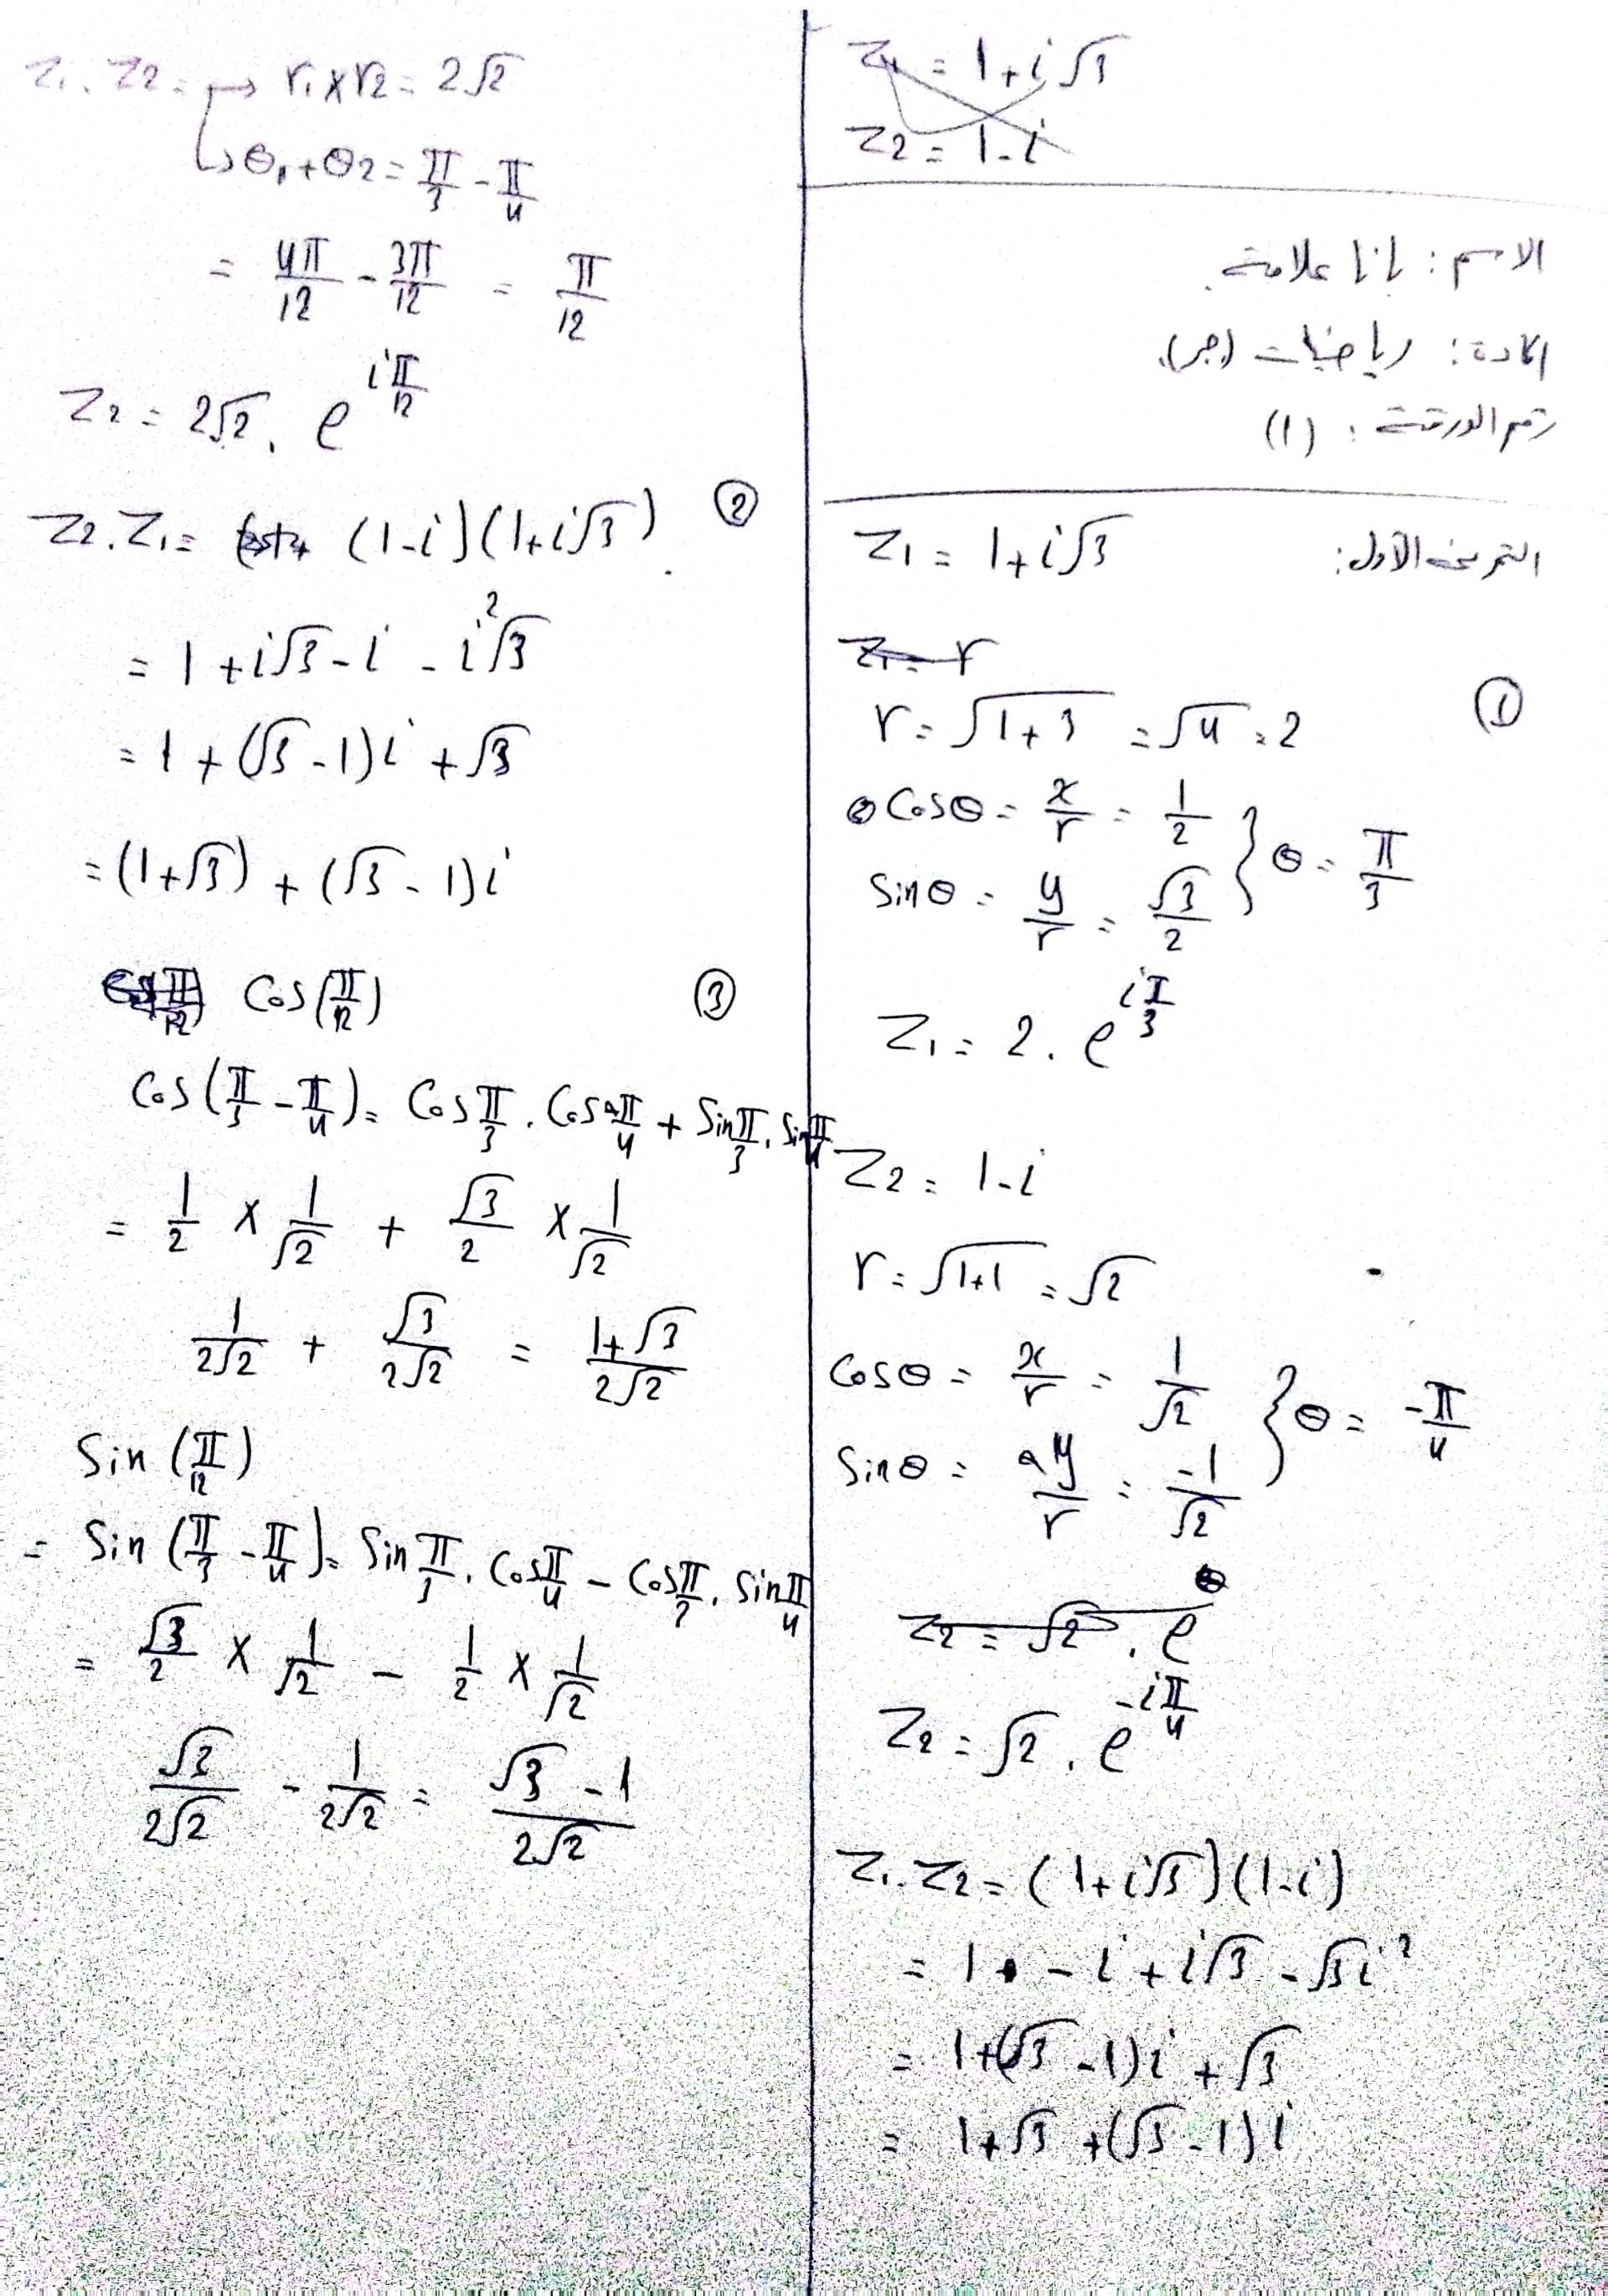 Z₁ = 1+i√3
Z₂ = 1-i
الاسم: يانا علامة.
المادة: رياضيات (جبر).
رقم الورقة: (1)
التمرين الأول: Z₁ = 1+i√3
①
r = √1+3 = √4 = 2
Cosθ = x/r = 1/2
Sinθ = y/r = √3/2 } θ = π/3
Z₁ = 2. e^iπ/3
Z₂ = 1-i
r = √1+1 = √2
Cosθ = x/r = 1/√2
Sinθ = y/r = -1/√2 } θ = -π/4
Z₂ = √2 . e
Z₂ = √2 . e^-iπ/4
Z₁. Z₂ = (1+i√3)(1-i)
= 1 - i + i√3 - √3i²
= 1+(√3-1)i + √3
= 1+√3 +(√3-1)i
Z₁. Z₂ = → r₁ x r2 = 2√2
↳ θ₁+θ2 = π/3 - π/4
= 4π/12 - 3π/12 = π/12
Z₂ = 2√2 . e^iπ/12
② Z₂. Z₁ = (1-i)(1+i√3).
= 1 + i√3 - i - i²√3
= 1 + (√3-1)i + √3
= (1+√3) + (√3-1)i
③ Cos(π/12)
Cos(π/3 - π/4) = Cos π/3 . Cos π/4 + Sin π/3 . Sin π/4
= 1/2 x 1/√2 + √3/2 x 1/√2
1/2√2 + √3/2√2 = 1+√3/2√2
Sin (π/12)
= Sin (π/3 - π/4) = Sin π/3 . Cos π/4 - Cos π/3 . Sin π/4
= √3/2 x 1/√2 - 1/2 x 1/√2
√3/2√2 - 1/2√2 = √3-1/2√2